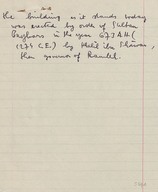 the building as it stands today
was erected by order of Sultan
Beybars in the year 673 A.H.
(1274 C.E.) by Khalil ibn
then governor of Ramleh.